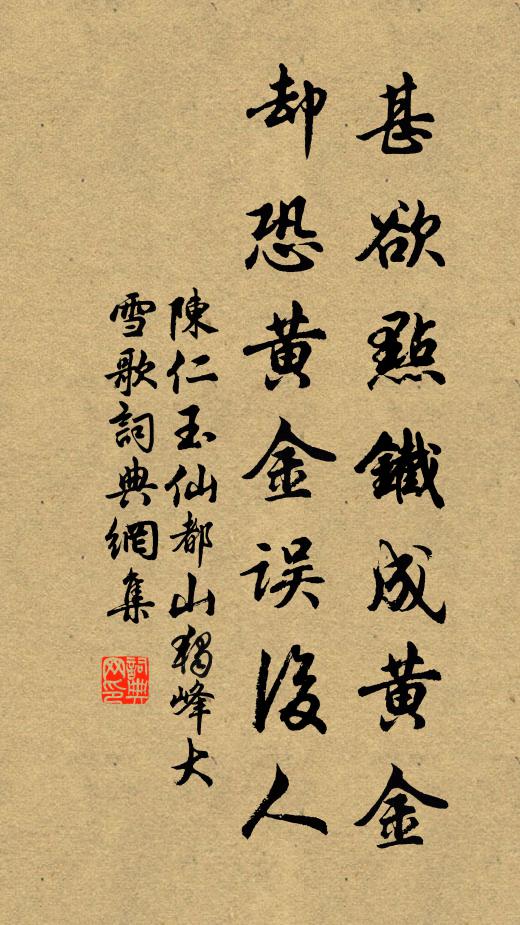 甚欲點鐵成黃金
却恐黃金误後人
陳仁玉仙都山獨峰大
雪歌詞典網集
詞典网印